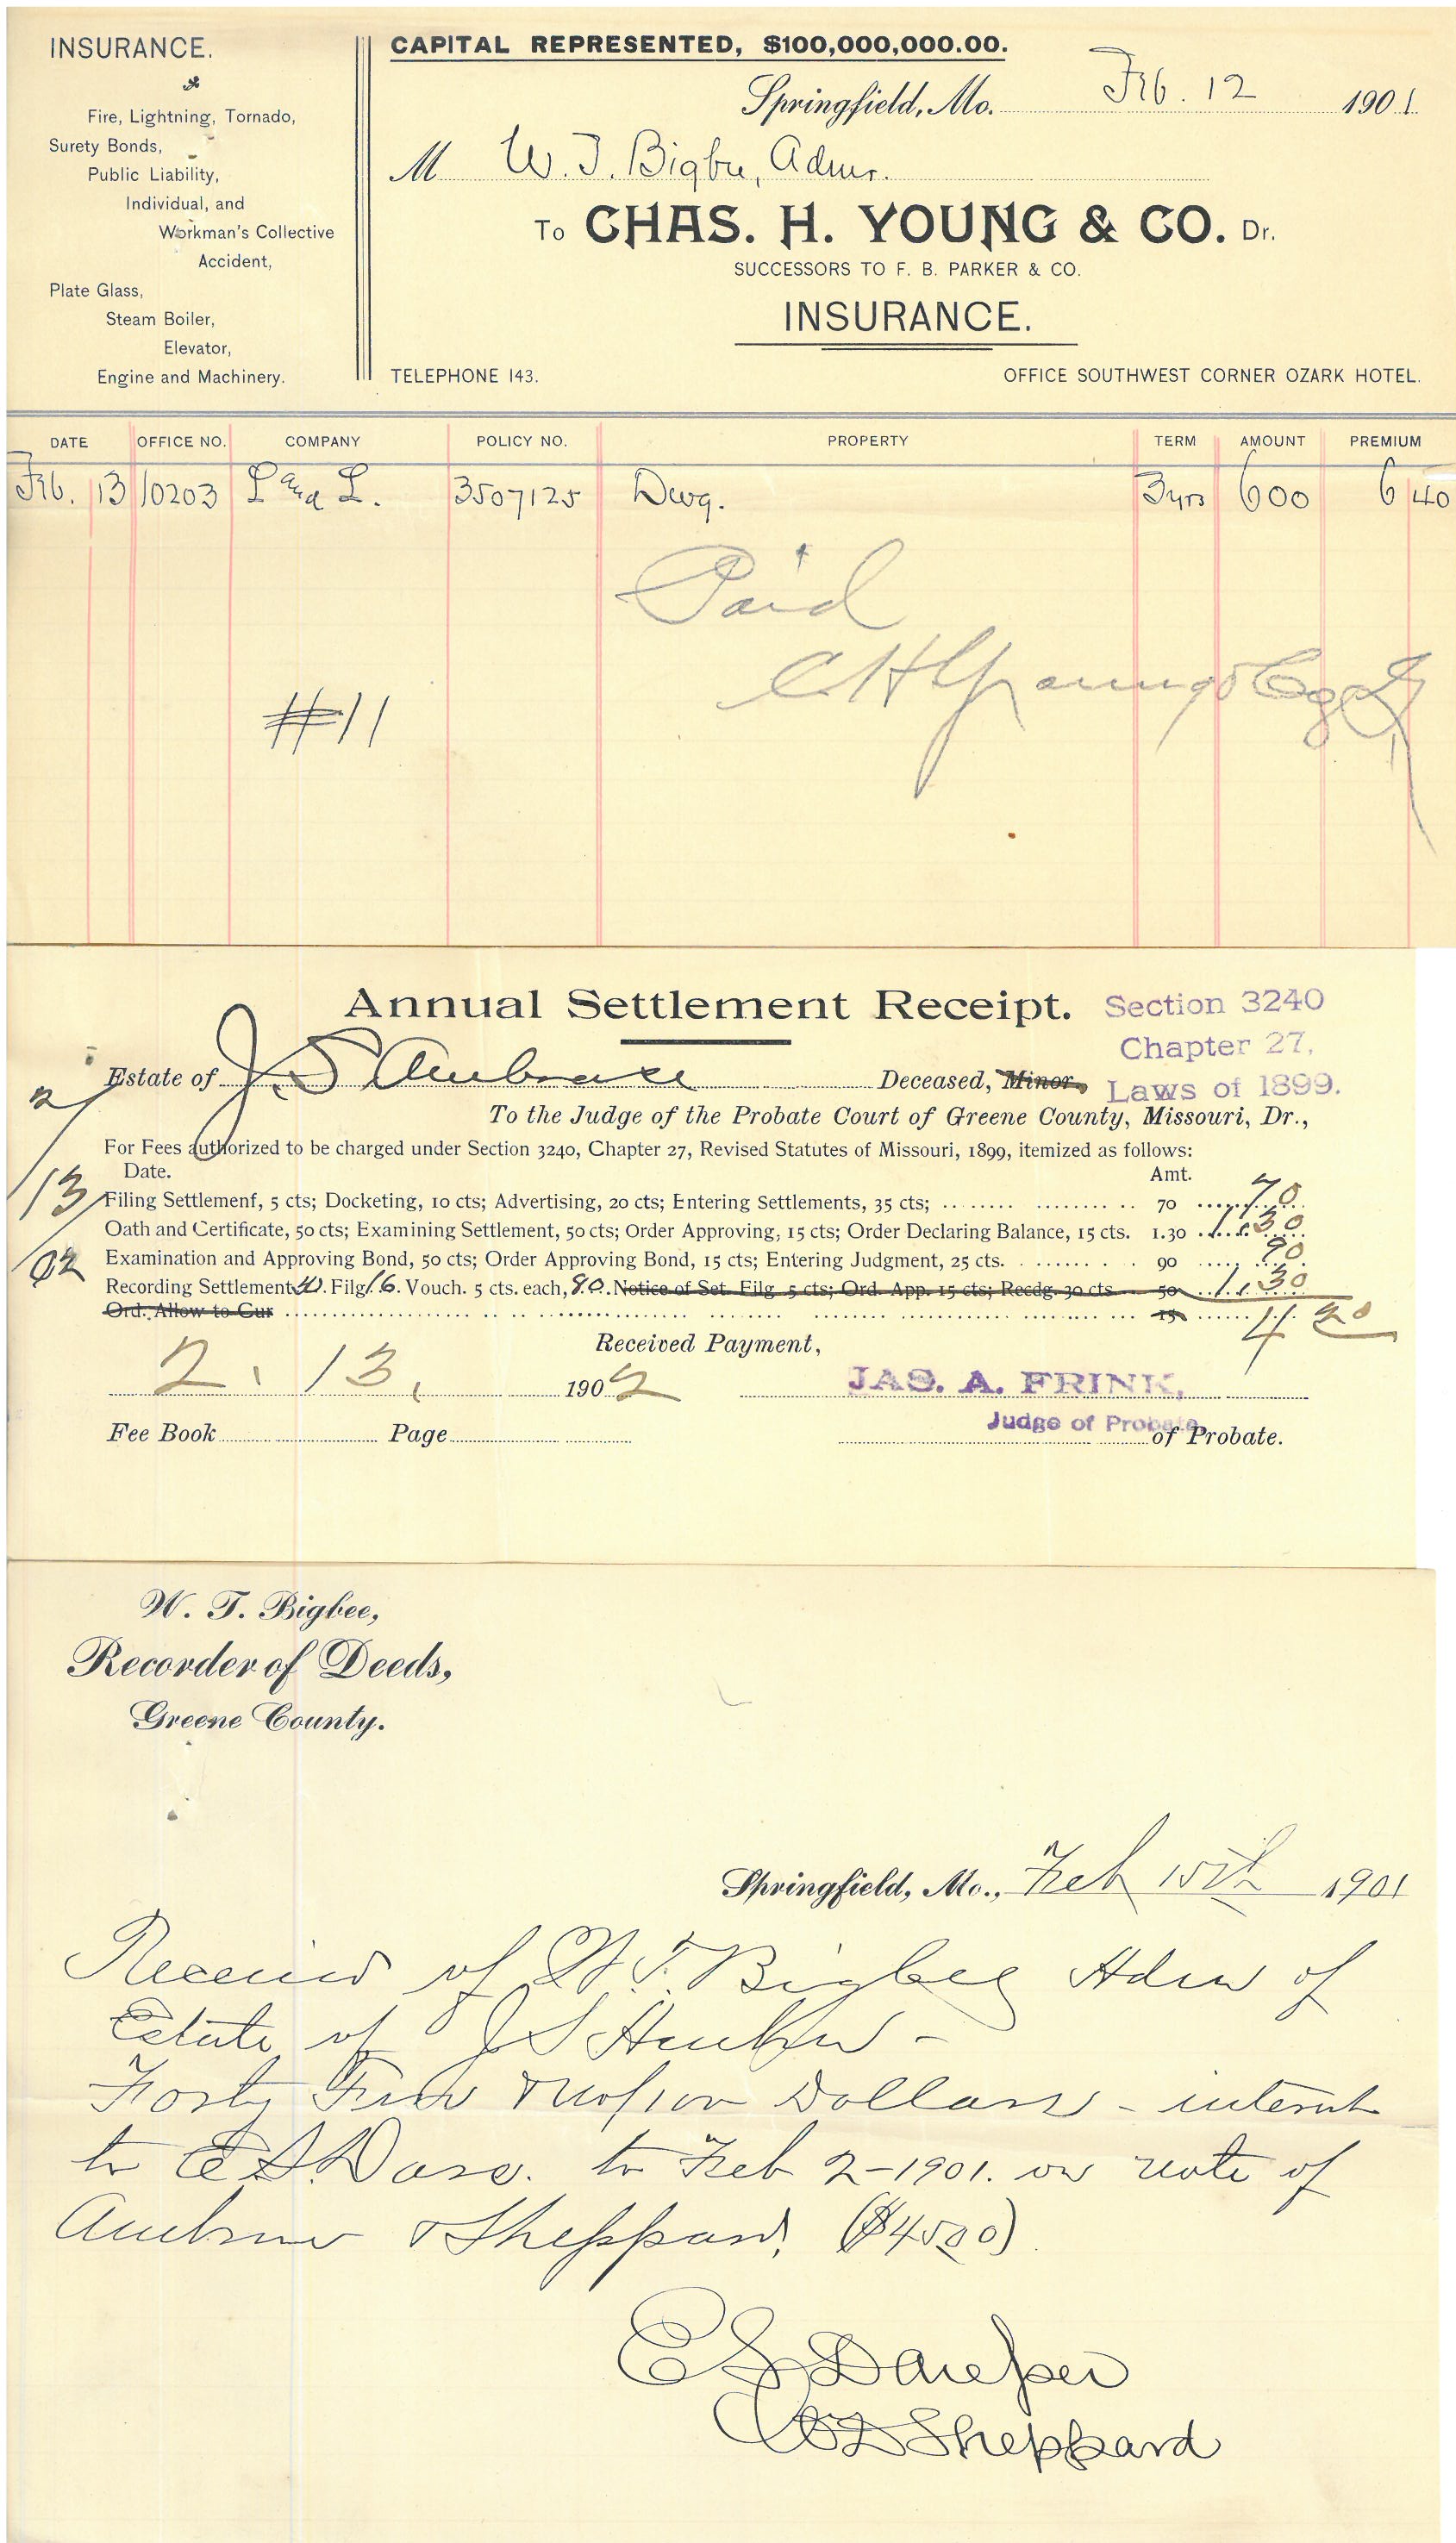 INSURANCE.
Fire, Lightning, Tornado,
Surety Bonds,
Public Liability,
Individual, and
Workman's Collective
Accident,
Plate Glass,
Steam Boiler,
Elevator,
Engine and Machinery.
CAPITAL REPRESENTED, $100,000,000.00.
Springfield, Mo. Feb. 12 1901.
M W. T. Bigbee, Admr.
To CHAS. H. YOUNG & CO. Dr.
SUCCESSORS TO F. B. PARKER & CO.
INSURANCE.
TELEPHONE 143. OFFICE SOUTHWEST CORNER OZARK HOTEL.
DATE OFFICE NO. COMPANY POLICY NO. PROPERTY TERM AMOUNT PREMIUM
Feb. 13 10203 L and L. 3507125 Dwg. 3 yrs 600 6 40
Paid
C H Young & Co
#11
Annual Settlement Receipt.
Section 3240
Chapter 27,
Laws of 1899.
Estate of J. S Ambrose Deceased, Minor,
To the Judge of the Probate Court of Greene County, Missouri, Dr.,
For Fees authorized to be charged under Section 3240, Chapter 27, Revised Statutes of Missouri, 1899, itemized as follows:
Date. Amt.
2/13/02
Filing Settlement, 5 cts; Docketing, 10 cts; Advertising, 20 cts; Entering Settlements, 35 cts; 70 70
Oath and Certificate, 50 cts; Examining Settlement, 50 cts; Order Approving, 15 cts; Order Declaring Balance, 15 cts. 1.30 1.30
Examination and Approving Bond, 50 cts; Order Approving Bond, 15 cts; Entering Judgment, 25 cts. 90 90
Recording Settlement Filg 16. Vouch. 5 cts. each, 80. Notice of Set. Filg. 5 cts; Ord. App. 15 cts; Recdg. 30 cts 50 1.30
Ord. Allow to Cur 15 4 20
Received Payment,
2. 13, 1902 JAS. A. FRINK,
Judge of Probate
Fee Book Page of Probate.
W. T. Bigbee,
Recorder of Deeds,
Greene County.
Springfield, Mo., Feb 15th 1901
Received of W. T. Bigbee Adm of
Estate of J S
Forty Five & no/100 Dollars - interest
to E S. to Feb 2-1901. on note of
Ambrose & Sheppard, ($4500)
E S
Sheppard